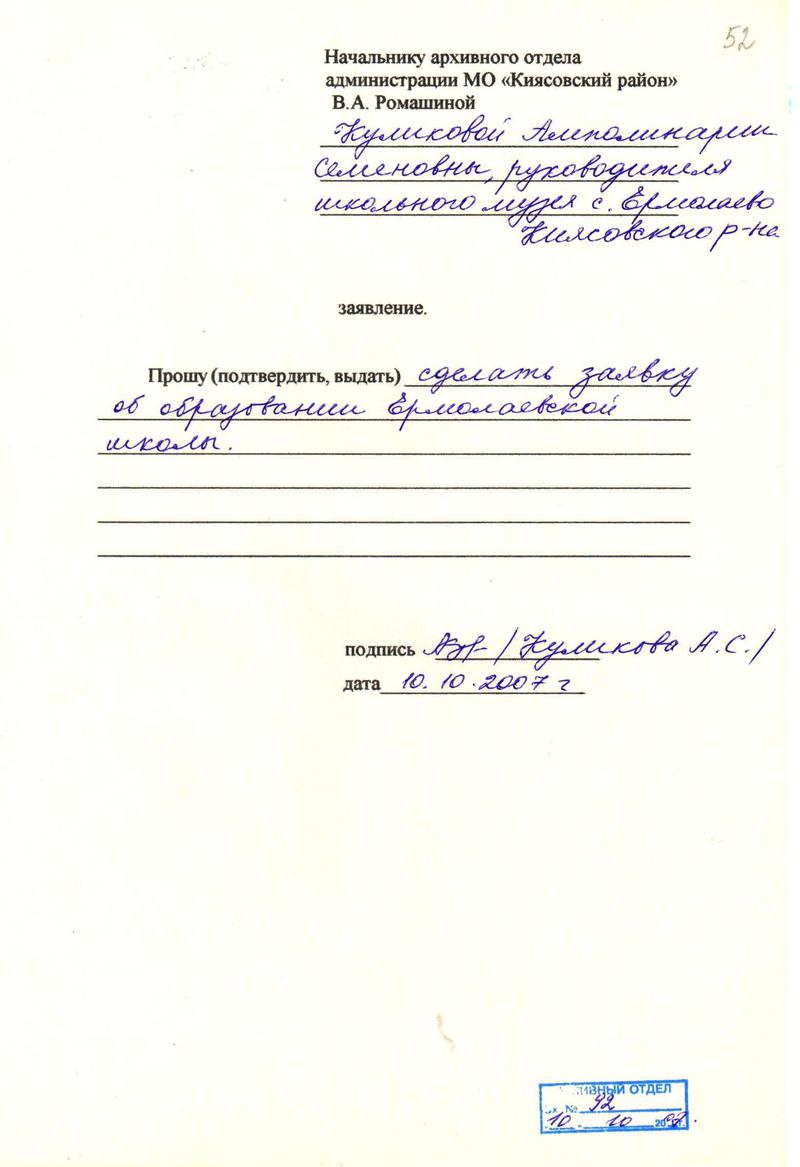 52
Начальнику архивного отдела
администрации МО «Киясовский район»
В.А. Ромашиной
Куликовой Амполинарии
Семеновны, руководителя
школьного музея с. Ермолаево
Киясовского р-на
заявление.
Прошу (подтвердить, выдать) сделать заявку
об образовании Ермолаевской
школы.
подпись /Куликова А.С./
дата 10.10.2007 г
ИВНЫЙ ОТДЕЛ
№ 92
10 10 2007.